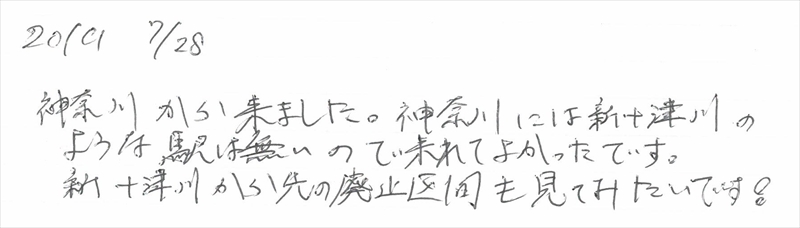 2019 7/28
神奈川から来ました。神奈川には新十津川の
ような駅は無いので来れてよかったです。
新十津川から先の廃止区間も見てみたいです!